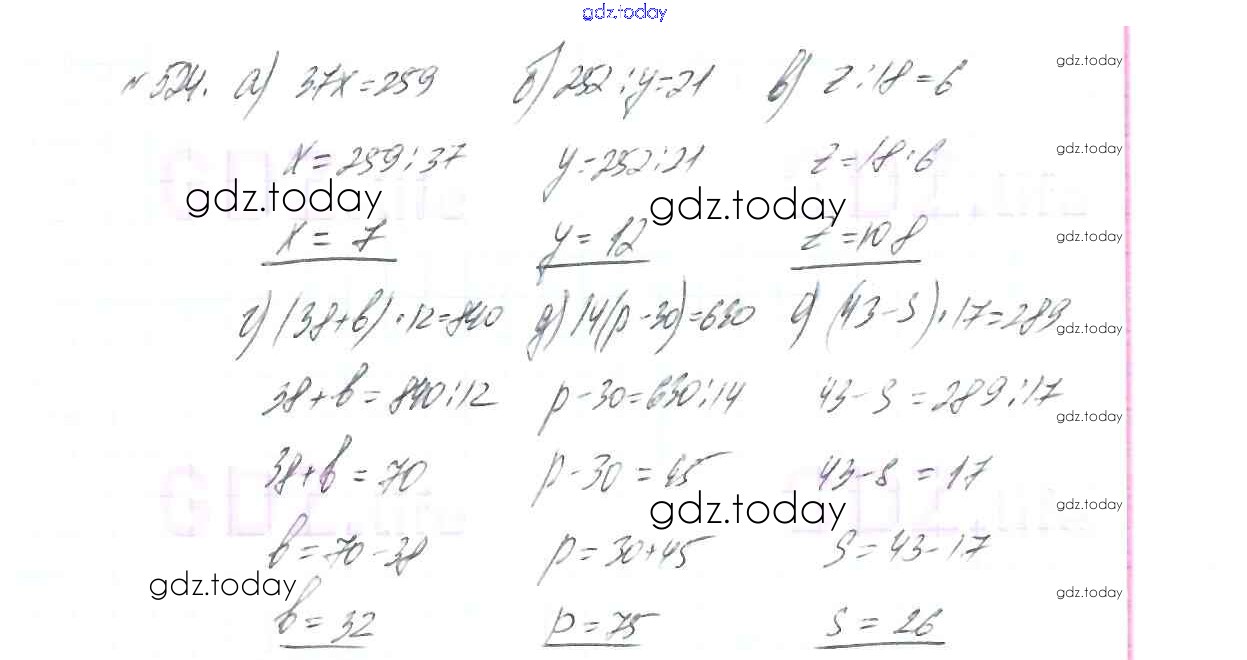 gdz.today
№ 524. а) 37x=259 б) 252:y=21 в) z:18=6 gdz.today
x=259:37 y=252:21 z=18·6 gdz.today
gdz.today gdz.today
x=7 y=12 z=108 gdz.today
г) (38+b)·12=840 д) 14(p-30)=630 е) (43-s)·17=289 gdz.today
38+b=840:12 p-30=630:14 43-s=289:17 gdz.today
38+b=70 p-30=45 43-s=17
gdz.today gdz.today
b=70-38 p=30+45 s=43-17
gdz.today gdz.today
b=32 p=75 s=26